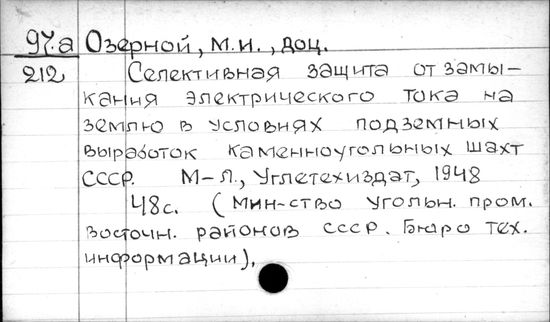 97.а Озерной, м.и., доц.
212 Селективная защита от замы-
кания электрического тока на
землю в условиях подземных
выработок каменноугольных шахт
СССР. М-Л., Углетехиздат, 1948
48с. (Мин-ство угольн. пром.
восточн. районов СССР. Бюро тех.
информации).